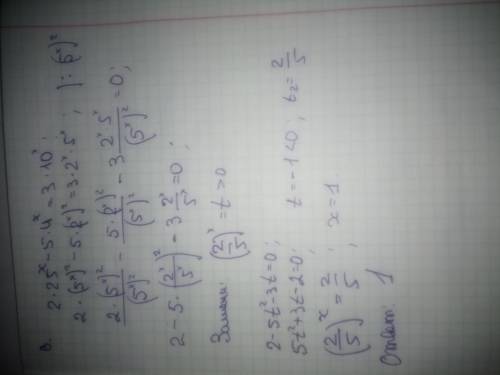 в. 2·25ˣ-5·4ˣ=3·10ˣ;
2·(5ˣ)²-5·(2ˣ)²=3·2ˣ·5ˣ; |:(5ˣ)²
2·(5ˣ)²/(5ˣ)² - 5·(2ˣ)²/(5ˣ)² - 3 2ˣ·5ˣ/(5ˣ)² =0;
2-5·(2ˣ/5ˣ)²-3 2ˣ/5ˣ=0;
Замена: (2/5)ˣ=t>0
2-5t²-3t=0;
5t²+3t-2=0; t=-1<0; t₂=2/5
(2/5)ˣ=2/5; x=1.
Ответ: 1